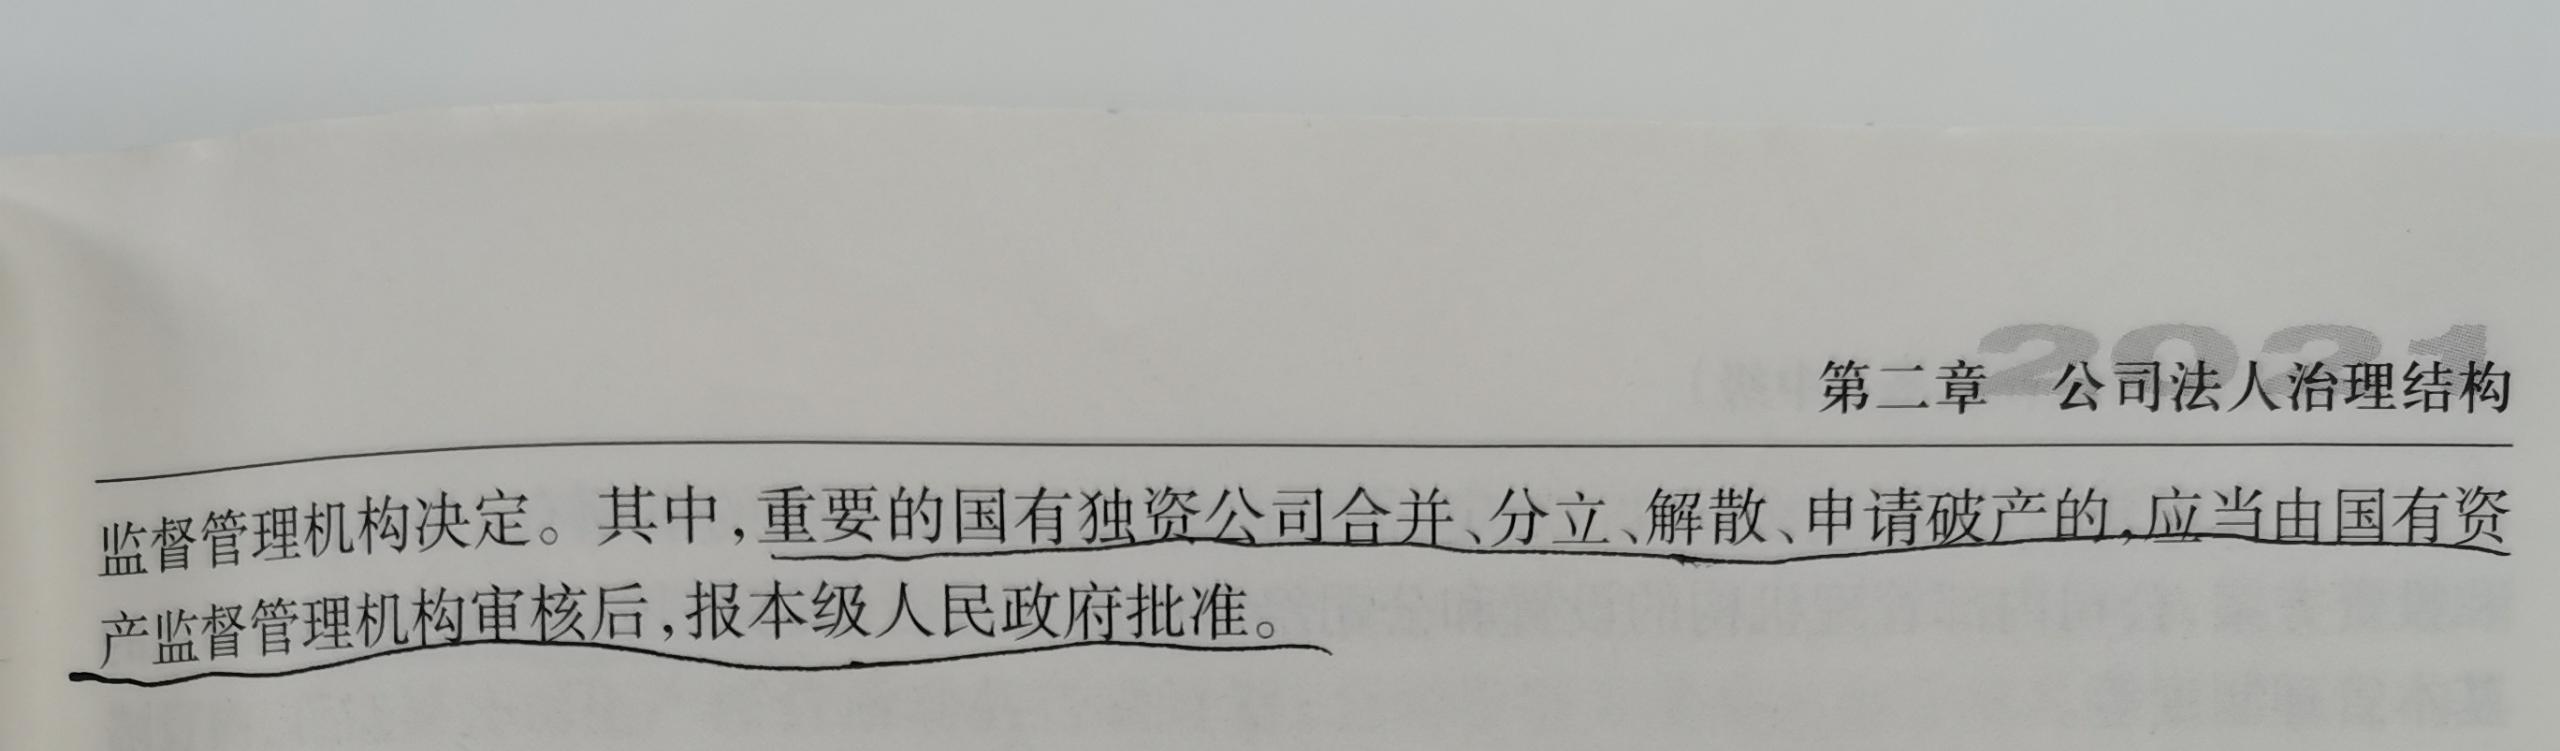 2021
第二章 公司法人治理结构
监督管理机构决定。其中,重要的国有独资公司合并、分立、解散、申请破产的,应当由国有资
产监督管理机构审核后,报本级人民政府批准。